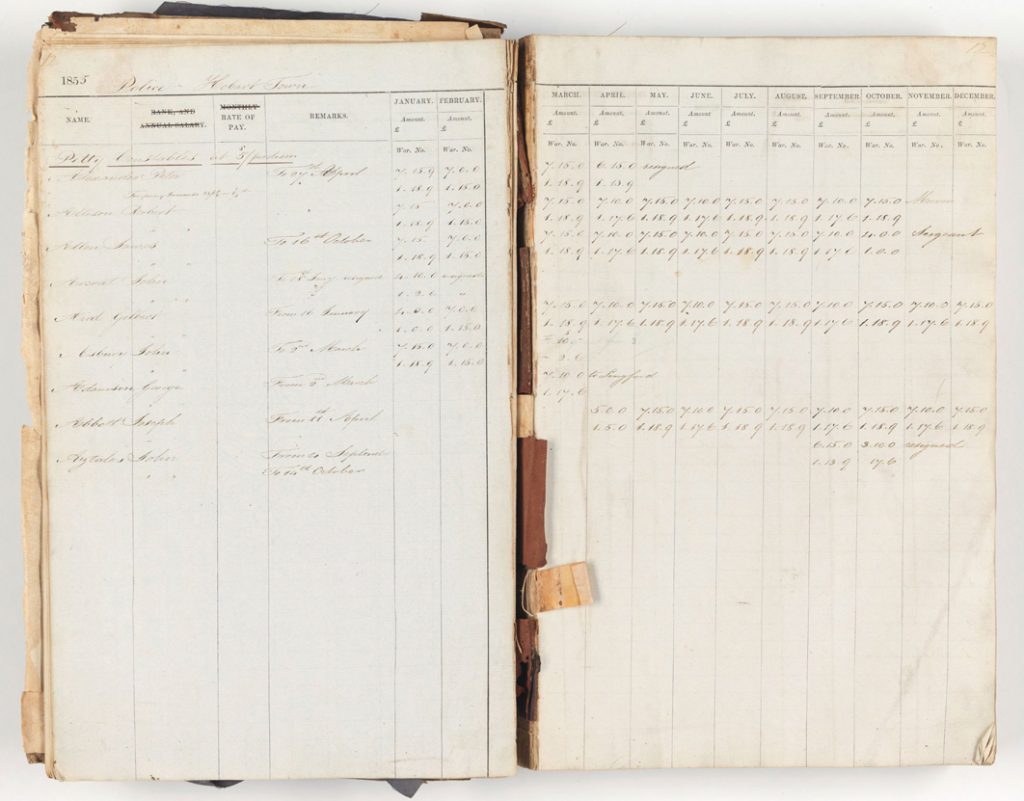 1855 Police Hobart Town
NAME. RANK, AND ANNUAL SALARY. MONTHLY RATE OF PAY. REMARKS. JANUARY. FEBRUARY. MARCH. APRIL. MAY. JUNE. JULY. AUGUST. SEPTEMBER. OCTOBER. NOVEMBER. DECEMBER.
Amount. Amount. Amount. Amount. Amount. Amount. Amount. Amount. Amount. Amount. Amount. Amount.
£ £ £ £ £ £ £ £ £ £ £ £
War. No. War. No. War. No. War. No. War. No. War. No. War. No. War. No. War. No. War. No. War. No. War. No.
Petty Constables at 5/ p diem
Alexander Peter To 27th April 7.15.9 7.0.0 7.15.0 6.15.0 resigned
1.18.9 1.15.0 1.18.9 1.13.9
Robert 7.15 7.0.0 7.15.0 7.10.0 7.15.0 7.10.0 7.15.0 7.15.0 7.10.0 7.15.0
1.18.9 1.15.0 1.18.9 1.17.6 1.18.9 1.17.6 1.18.9 1.18.9 1.17.6 1.18.9
Allen James To 16th October 7.15 7.0.0 7.15.0 7.10.0 7.15.0 7.10.0 7.15.0 7.15.0 7.10.0 4.0.0 Sergeant
1.18.9 1.15.0 1.18.9 1.17.6 1.18.9 1.17.6 1.18.9 1.18.9 1.17.6 1.0.0
John resigned resigned
Gilbert From 16 January 4.0.0 7.0.0 7.15.0 7.10.0 7.15.0 7.10.0 7.15.0 7.15.0 7.10.0 7.15.0 7.10.0 7.15.0
1.0.0 1.15.0 1.18.9 1.17.6 1.18.9 1.17.6 1.18.9 1.18.9 1.17.6 1.18.9 1.17.6 1.18.9
John To 2d March 7.15.0 7.0.0
1.18.9 1.15.0 2.6
Adamson George From 2d March 7.10.0 to Longford
1.17.6
Abbott Joseph From 11th April 5.0.0 7.15.0 7.10.0 7.15.0 7.15.0 7.10.0 7.15.0 7.10.0 7.15.0
1.5.0 1.18.9 1.17.6 1.18.9 1.18.9 1.17.6 1.18.9 1.17.6 1.18.9
John From 4 September 6.15.0 3.10.0 resigned
To 14th October 1.13.9 17.6